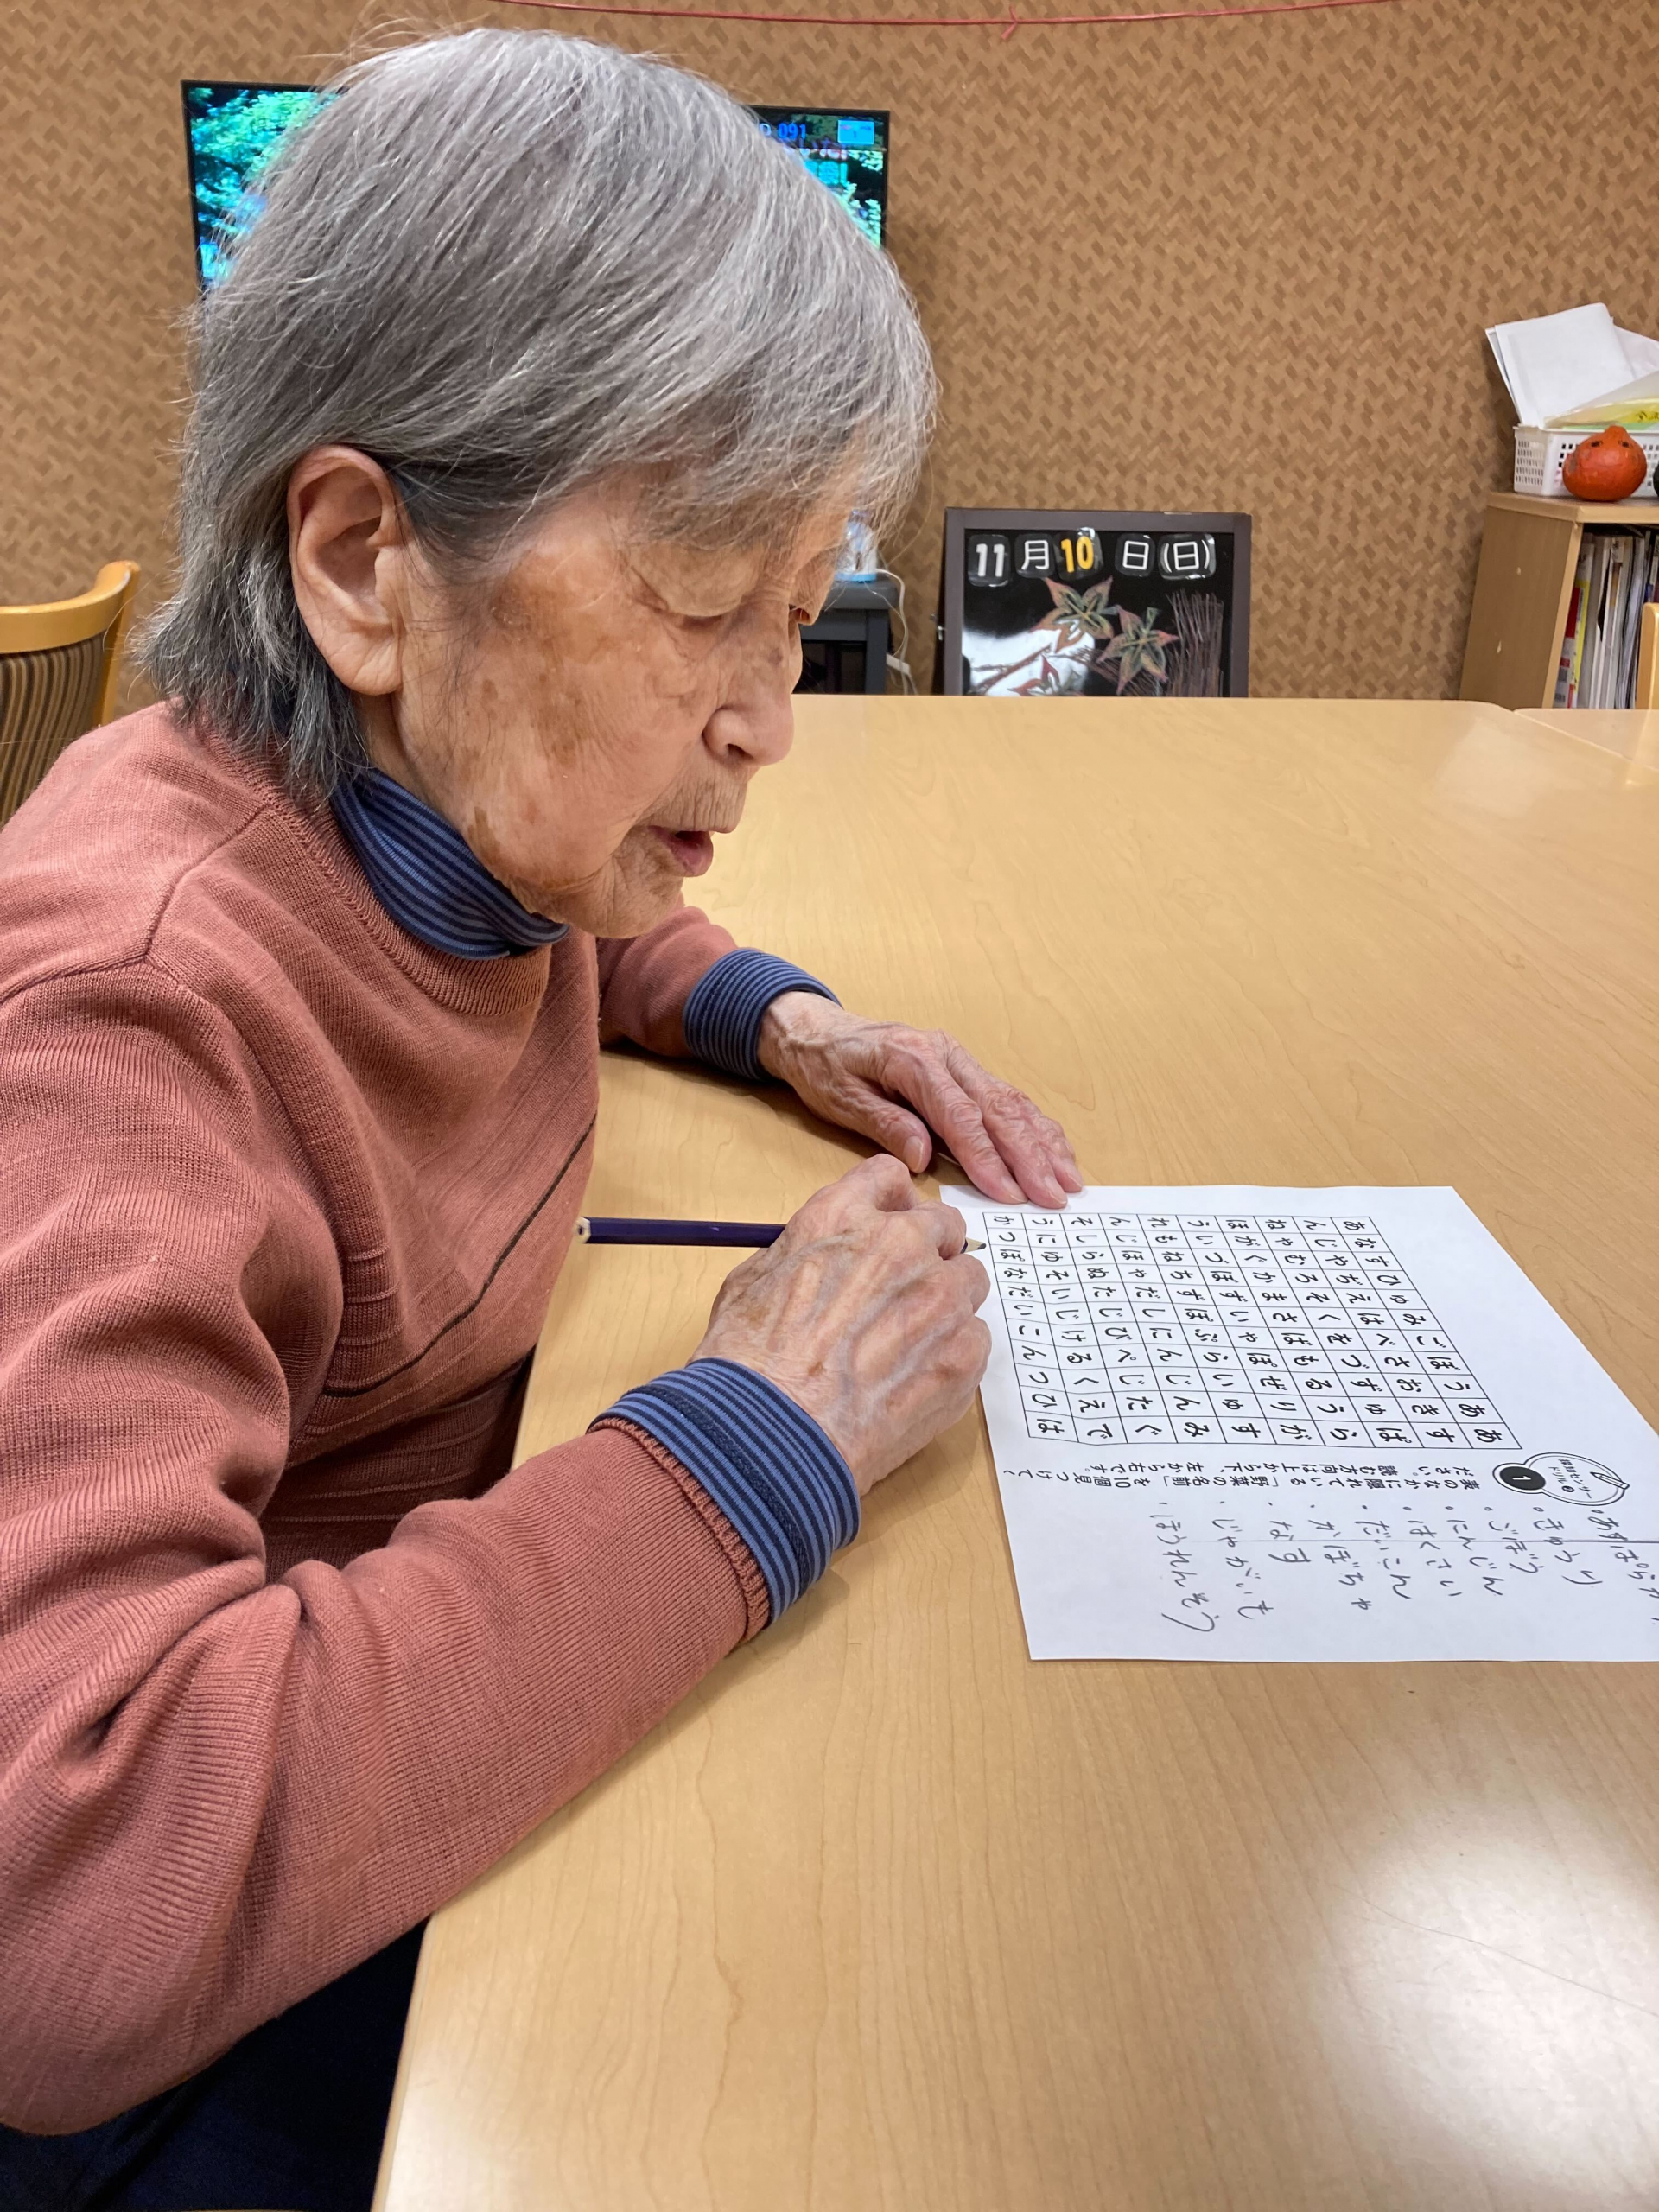 11月10日(日)
091
脳活センサー
ドリル
1
表のなかに隠れている「野菜の名前」を10個見つけてく
ださい。
読む方向は上から下、左から右です。
あなすひゆみごぼうああ
んじやぢえはべさおきす
ねゃむろそくをづずゆぱ
ほがぐかまさばもるうら
ういづぼずいやぽぜりが
れもねちずぽぶらいゆす
んじほやだしにんじんみ
そしらぬたじびぺじたぐ
うにゆそいじけるくえで
かつぼなだいこんつひは
・あすぱらが
・きゅうり
・ごぼう
・にんじん
・はくさい
・だいこん
・かぼちゃ
・なす
・じゃがいも
・ほうれんそう